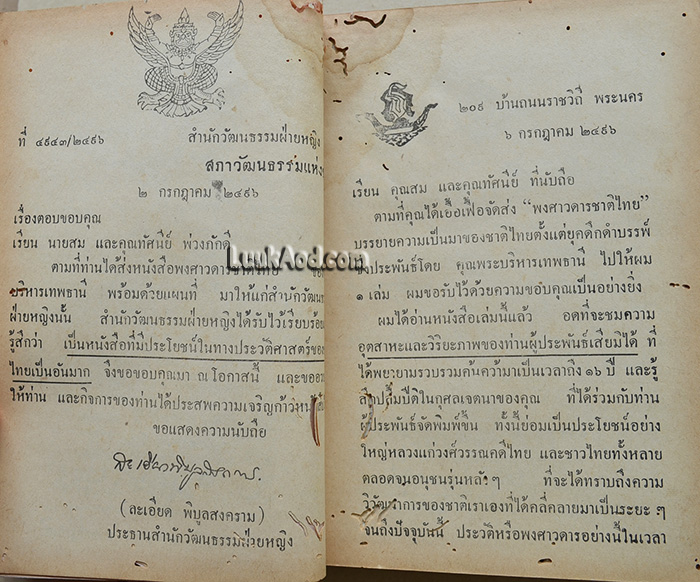 ที่ ๔๙๔๓/๒๔๙๖ สำนักวัฒนธรรมฝ่ายหญิง
สภาวัฒนธรรมแห่ง
๒ กรกฎาคม ๒๔๙๖
เรื่องตอบขอบคุณ
เรียน นายสม และคุณทัศนีย์ พ่วงภักดี
ตามที่ท่านได้ส่งหนังสือพงศาวดารชาติไทย
บริหารเทพธานี พร้อมด้วยแผนที่ มาให้แก่สำนักวัฒน
ฝ่ายหญิงนั้น สำนักวัฒนธรรมฝ่ายหญิงได้รับไว้เรียบร้อย
รู้สึกว่า เป็นหนังสือที่มีประโยชน์ในทางประวัติศาสตร์ของ
ไทยเป็นอันมาก จึงขอขอบคุณมา ณ โอกาสนี้ และขออ
ให้ท่าน และกิจการของท่านได้ประสพความเจริญก้าวหน้า
ขอแสดงความนับถือ
(ละเอียด พิบูลสงคราม)
ประธานสำนักวัฒนธรรมฝ่ายหญิง
๒๐๙ บ้านถนนราชวิถี พระนคร
๖ กรกฎาคม ๒๔๙๖
เรียน คุณสม และคุณทัศนีย์ ที่นับถือ
ตามที่คุณได้เอื้อเฟื้อจัดส่ง “พงศาวดารชาติไทย”
บรรยายความเป็นมาของชาติไทยตั้งแต่ยุคดึกดำบรรพ์
ซึ่งประพันธ์โดย คุณพระบริหารเทพธานี ไปให้ผม
๑ เล่ม ผมขอรับไว้ด้วยความขอบคุณเป็นอย่างยิ่ง
ผมได้อ่านหนังสือเล่มนี้แล้ว อดที่จะชมความ
อุตสาหะและวิริยะภาพของท่านผู้ประพันธ์เสียมิได้ ที่
ได้พยายามรวบรวมค้นคว้ามาเป็นเวลาถึง ๑๖ ปี และรู้
สึกปลื้มปีติในกุศลเจตนาของคุณ ที่ได้ร่วมกับท่าน
ผู้ประพันธ์จัดพิมพ์ขึ้น ทั้งนี้ย่อมเป็นประโยชน์อย่าง
ใหญ่หลวงแก่วงศ์วรรณคดีไทย และชาวไทยทั้งหลาย
ตลอดจนอนุชนรุ่นหลัง ๆ ที่จะได้ทราบถึงความ
วิวัฒนาการของชาติเราเองที่ได้คลี่คลายมาเป็นระยะ ๆ
จนถึงปัจจุบันนี้ ประวัติหรือพงศาวดารอย่างนี้ในเวลา
LuukAod.com